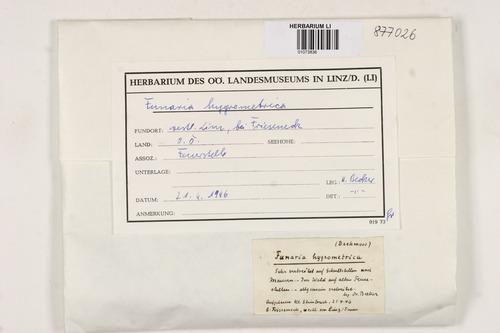 HERBARIUM LI
01073836
877026
HERBARIUM DES OÖ. LANDESMUSEUMS IN LINZ/D. (LI)
Funaria hygrometrica
FUNDORT: westl. Linz, bei Frieseneck
LAND: O.Ö. SEEHÖHE:
ASSOZ.: Feuerstelle
UNTERLAGE:
LEG.: H. Becker
DATUM: 21. 4. 1946 DET.: -"-
ANMERKUNG:
019 73
(Dachmoos)
Funaria hygrometrica
Sehr verbreitet auf Schuttstellen und
Mauern - Im Wald auf alten Feuer-
stellen - allgemein verbreitet.
leg. Dr. Becker
21.4.46
b. Frieseneck, westl. von Linz/Donau